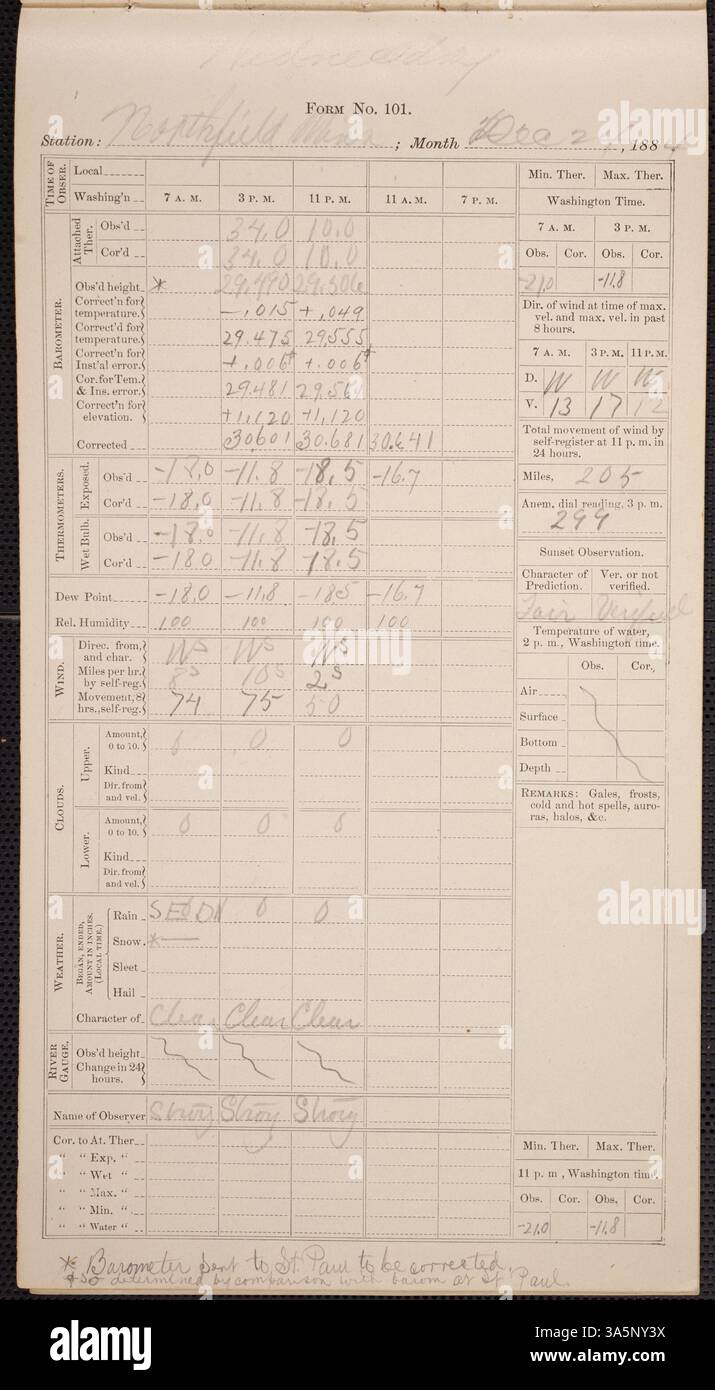 Wednesday
FORM No. 101.
Station: Northfield Minn ; Month Dec 24, 1884
TIME OF OBSER.
Local
Washing'n 7 A. M. 3 P. M. 11 P. M. 11 A. M. 7 P. M.
BAROMETER.
Attached Ther.
Obs'd 34.0 10.0
Cor'd 34.0 10.0
Obs'd height * 29.490 29.506
Correct'n for temperature. -.015 +.049
Correct'd for temperature. 29.475 29.555
Correct'n for Inst'al error. +.006 +.006
Cor. for Tem. & Ins. error. 29.481 29.561
Correct'n for elevation. +1.120 +1.120
Corrected 30.601 30.681 30.641
THERMOMETERS.
Exposed.
Obs'd -18.0 -11.8 -18.5 -16.7
Cor'd -18.0 -11.8 -18.5
Wet Bulb.
Obs'd -18.0 -11.8 -18.5
Cor'd -18.0 -11.8 -18.5
Dew Point -18.0 -11.8 -18.5 -16.7
Rel. Humidity 100 100 100 100
WIND.
Direc. from, and char. Ws Ws Ws
Miles per hr. by self-reg. 8s 10s 2s
Movement, 8 hrs., self-reg. 74 75 50
CLOUDS.
Upper.
Amount, 0 to 10. 0 0 0
Kind
Dir. from and vel.
Lower.
Amount, 0 to 10. 0 0 0
Kind
Dir. from and vel.
WEATHER.
BEGAN, ENDED, AMOUNT IN INCHES. (LOCAL TIME.)
Rain 0 0
Snow. *
Sleet
Hail
Character of Clear Clear Clear
RIVER GAUGE.
Obs'd height
Change in 24 hours.
Name of Observer
Cor. to At. Ther
" " Exp. "
" " Wet "
" " Max. "
" " Min. "
" " Water "
Min. Ther. Max. Ther.
Washington Time.
7 A. M. 3 P. M.
Obs. Cor. Obs. Cor.
-21.0 -11.8
Dir. of wind at time of max. vel. and max. vel. in past 8 hours.
7 A. M. 3 P. M. 11 P. M.
D. W W W
V. 13 17 12
Total movement of wind by self-register at 11 p. m. in 24 hours.
Miles, 205
Anem. dial reading, 3 p. m.
299
Sunset Observation.
Character of Prediction. Ver. or not verified.
Fair Verified
Temperature of water, 2 p. m., Washington time.
Obs. Cor.
Air
Surface
Bottom
Depth
REMARKS: Gales, frosts, cold and hot spells, auroras, halos, &c.
Min. Ther. Max. Ther.
11 p. m , Washington time.
Obs. Cor. Obs. Cor.
-21.0 -11.8
* Barometer sent to St. Paul to be corrected.
so determined by comparison with barom at St. Paul
alamy
Image ID: 3A5NY3X
www.alamy.com